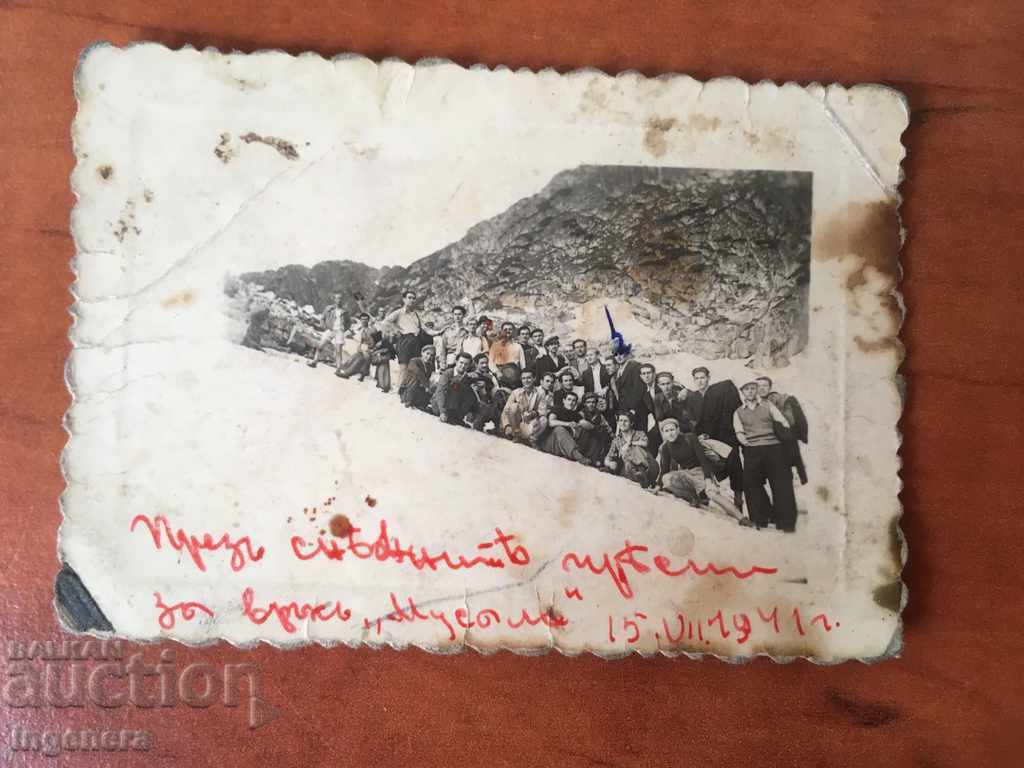 Презъ снѣжнитѣ прѣспи
за връхъ „Мусала“ 15.VII.1941г.
BALKAN
auction
Ingenera